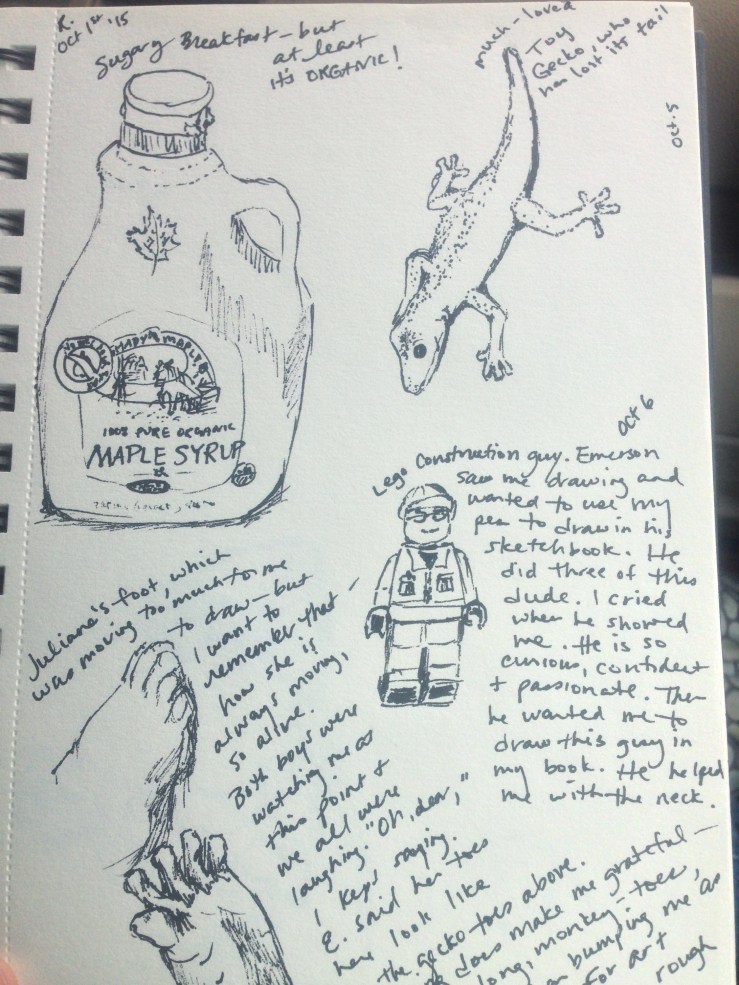 R.
Oct 1st '15
Sugary Breakfast - but
at least
it's ORGANIC!
SHADY MAPLE
100% PURE ORGANIC
MAPLE SYRUP
much-loved
Toy
Gecko, who
has lost its tail
Oct. 5
Oct 6
Lego Construction guy. Emerson
saw me drawing and
wanted to use my
pen to draw in his
sketchbook. He
did three of this
dude. I cried
when he showed
me. He is so
curious, confident
+ passionate. Then
he wanted me to
draw this guy in
my book. He helped
me with the neck.
Juliana's foot, which
was moving too much for me
to draw - but
I want to
remember that -
how she is
always moving,
so alive.
Both boys were
watching me at
this point +
we all were
laughing. "Oh, dear,"
I kept saying.
E. said her toes
here look like
the gecko toes above.
does make me grateful -
long, monkey-toes,
bumping me as
for art
rough